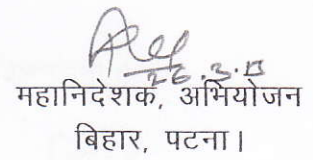 26.3.13
महानिदेशक, अभियोजन
बिहार, पटना।